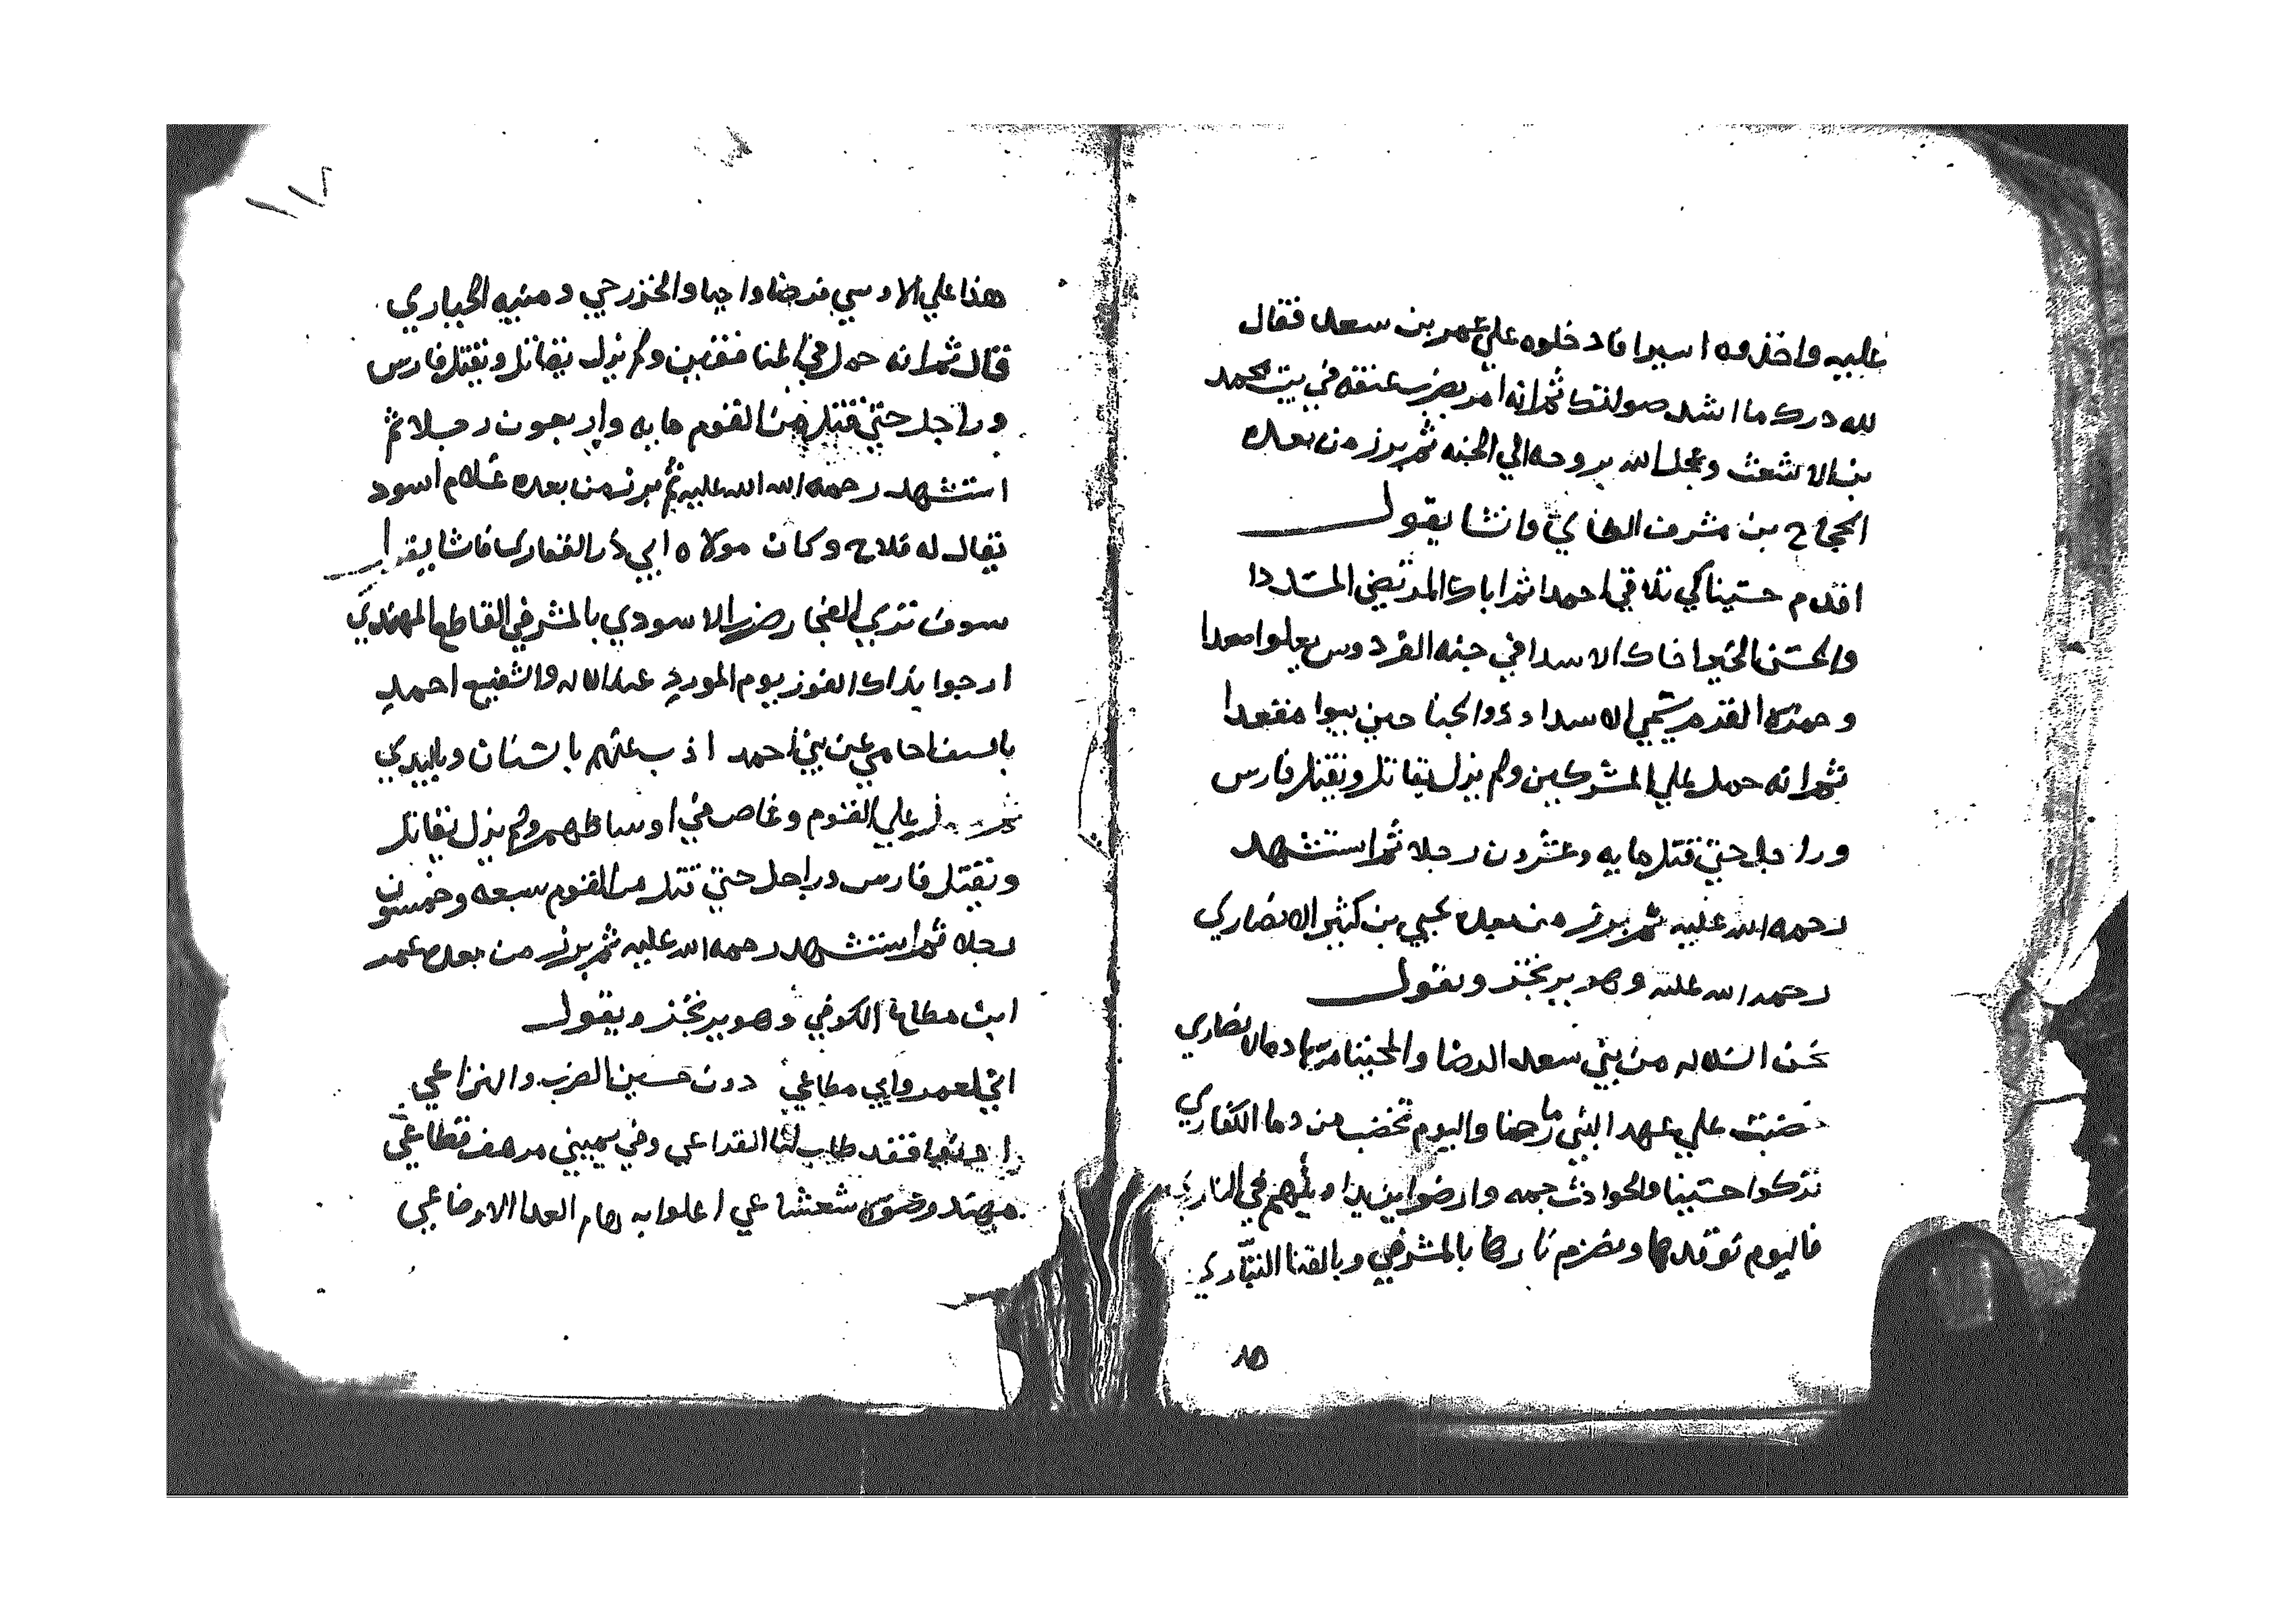 عليه واخذوه اسيرا فادخلوه علي عمر بن سعد فقال
لله درك ما اشد صولتك ثم انه امر بضرب عنقه في بيت محمد
بن الاشعث وعجل الله بروحه الي الجنه ثم برز من بعده
الحجاج بن مشرف الطاي وانشا يقول
اقدم حسينا كي تلاقي احمدا ثم اباك المرتضي المسددا
والحسن الخير اخاك الاسدا في جنه الفردوس يعلوا صعدا
وحمزه القرم سمي الاسدا وذو الجنا حين بيوا مقعدا
ثم انه حمل علي المشركين ولم يزل يقاتل ويقتل فارس
وراجل حتي قتل مايه وعشرون رجلا ثم استشهد
رحمه الله عليه ثم برز من بعده يحيي بن كثير الانصاري
رحمه الله عليه وهو يرتجز ويقول
نحن السلاله من بني سعد الرضا والمحتبنا دما الانصاري
خضبت علي عهد النبي رماحنا واليوم تخضب من دما الكفاري
تركوا حسينا والحوادث جمه وارضوا يزيدا في الناري
فاليوم نوقدها ونضرم نارها بالمشرفي وبالقنا التباري
هذا
١١٧
هذا علي الاوسي فرضا واجبا والخزرجي ومنيه الجباري
قال ثم انه حمل في المنافقين ولم يزل يقاتل ويقتل فارس
وراجل حتي قتل من القوم مايه واربعون رجلا ثم
استشهد رحمه الله الله عليه ثم برز من بعده غلام اسود
يقال له فلاح وكان مولاه ابي ذر الغفاري فانشا يقول
سوف تري الفجار ضرب الاسودي بالمشرفي القاطع المهندي
ارجوا بذاك الفوز يوم الموردي عند الاله والشفيع احمد
بالسيف احامي عن بني احمد اذب عنهم بالسنان وباليدي
علي القوم وغاص في اوساطهم ولم يزل يقاتل
ويقتل فارس وراجل حتي قتل من القوم سبعه وخمسون
رجلا ثم استشهد رحمه الله عليه ثم برز من بعده عمر
ابن مطاع الكوفي وهو يرتجز ويقول
اني لعمر وابي مطاعي دون حسين الضرب والنزاعي
فقد طاب لنا القراعي وفي يميني مرهف قطاعي
مهند وضوه شعشاعي اعلوا به هام العدا الاوضاعي